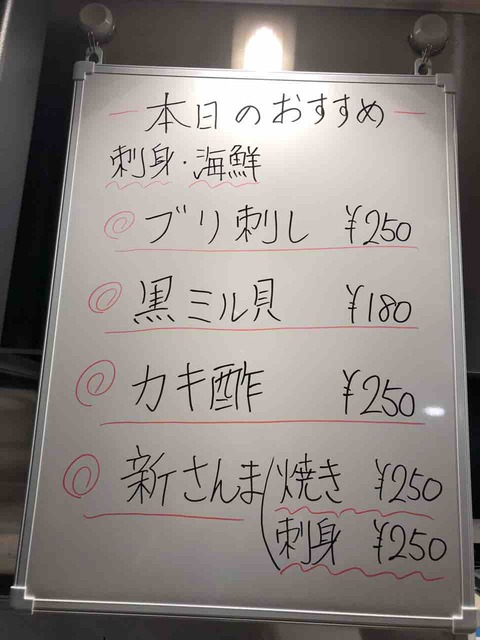 本日のおすすめ
刺身・海鮮
ブリ刺し ¥250
黒ミル貝 ¥180
カキ酢 ¥250
新さんま(焼き ¥250
刺身 ¥250